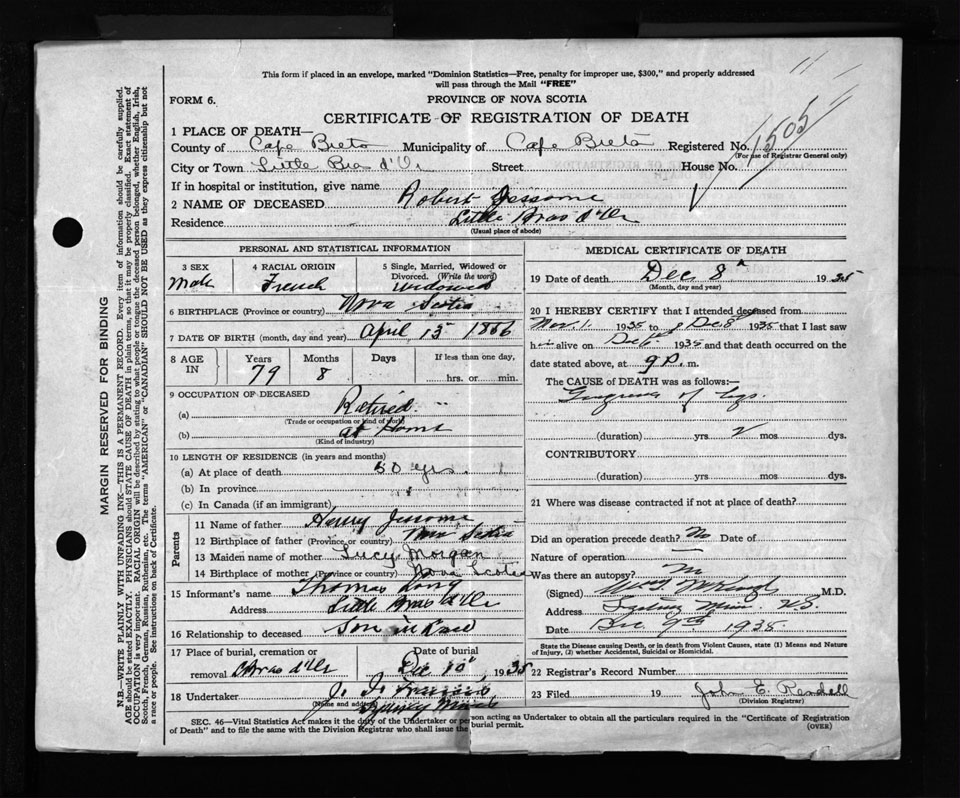 This form if placed in an envelope, marked "Dominion Statistics—Free, penalty for improper use, $300," and properly addressed
will pass through the Mail "FREE"
FORM 6.
PROVINCE OF NOVA SCOTIA
CERTIFICATE OF REGISTRATION OF DEATH
1 PLACE OF DEATH—
County of Cape Breton Municipality of Cape Breton Registered No. 1505
(For use of Registrar General only)
City or Town Little Bras d'Or Street House No.
If in hospital or institution, give name
2 NAME OF DECEASED Robert Jessome
Residence Little Bras d'Or
(Usual place of abode)
PERSONAL AND STATISTICAL INFORMATION
3 SEX
Male
4 RACIAL ORIGIN
French
5 Single, Married, Widowed or
Divorced. (Write the word)
Widowed
6 BIRTHPLACE (Province or country) Nova Scotia
7 DATE OF BIRTH (month, day and year) April 15 1856
8 AGE
IN
Years
79
Months
8
Days
If less than one day,
hrs. or min.
9 OCCUPATION OF DECEASED
(a) Retired
(Trade or occupation or kind of work)
(b) at Home
(Kind of industry)
10 LENGTH OF RESIDENCE (in years and months)
(a) At place of death 50 yrs.
(b) In province
(c) In Canada (if an immigrant)
Parents
11 Name of father Henry Jessome
12 Birthplace of father (Province or country) Nova Scotia
13 Maiden name of mother Lucy Morgan
14 Birthplace of mother (Province or country) Nova Scotia
15 Informant's name Thomas
Address Little Bras d'Or
16 Relationship to deceased Son in Law
17 Place of burial, cremation or
removal Bras d'Or
Date of burial
Dec 10th, 1935
18 Undertaker J. J.
(Name and address) Sydney Mines
MEDICAL CERTIFICATE OF DEATH
19 Date of death Dec 8th 1935
(Month, day and year)
20 I HEREBY CERTIFY that I attended deceased from
Nov. 1. 1935 to Dec 8th 1935 that I last saw
h alive on 1935 and that death occurred on the
date stated above, at 9 P. m.
The CAUSE of DEATH was as follows:—
Gangrene of legs.
(duration) yrs 2 mos dys.
CONTRIBUTORY
(duration) yrs mos dys.
21 Where was disease contracted if not at place of death?
Did an operation precede death? No Date of
Nature of operation
Was there an autopsy? No
(Signed) M.D.
Address Sydney Mines N.S.
Date Dec 9th 1935
State the Disease causing Death, or in death from Violent Causes, state (1) Means and Nature
of Injury, (2) whether Accidental, Suicidal or Homicidal.
22 Registrar's Record Number
23 Filed 19 John E. Rendell
(Division Registrar)
SEC. 46—Vital Statistics Act makes it the duty of the Undertaker or person acting as Undertaker to obtain all the particulars required in the "Certificate of Registration
of Death" and to file the same with the Division Registrar who shall issue the burial permit.
(OVER)
MARGIN RESERVED FOR BINDING
N.B.—WRITE PLAINLY WITH UNFADING INK—THIS IS A PERMANENT RECORD. Every item of information should be carefully supplied.
AGE should be stated EXACTLY. PHYSICIANS should STATE CAUSE OF DEATH in plain terms, so that it may be properly classified. Exact statement of
OCCUPATION is very important. RACIAL ORIGIN will be described by stating to what people or tongue the deceased person belonged, whether English, Irish,
Scotch, French, German, Russian, Ruthenian, etc. The terms "AMERICAN" or "CANADIAN" SHOULD NOT BE USED as they express citizenship but not
a race or people. See instructions on back of Certificate.